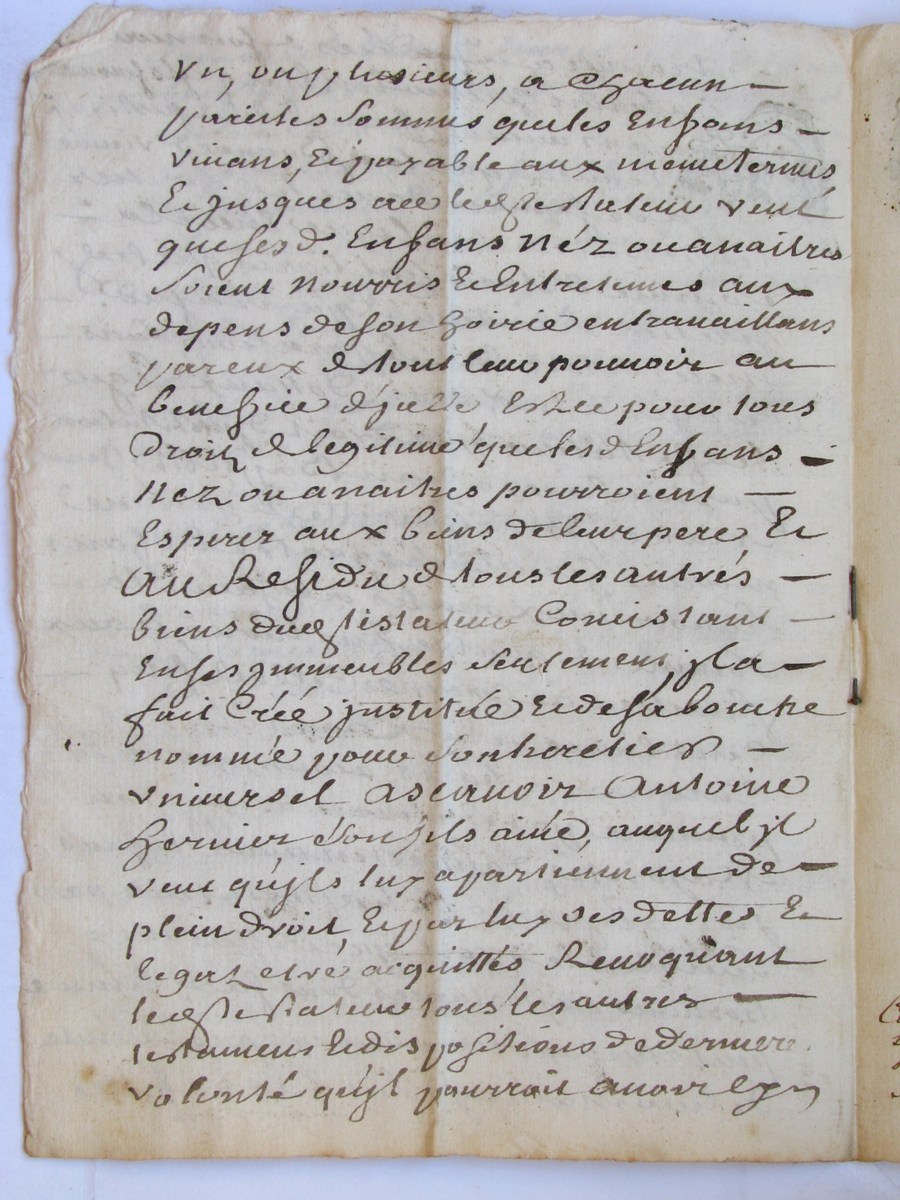 un, ou plusieurs, a Chacun
pareilles Sommes que les Enfans
vivans, Et payable aux meme termes,
Et jusques a ce ledt testateur veut
que ses d. Enfans Néz ou a naitres
Soient nourris Et Entretenus aux
depens de son hoirie en travaillans
par eux de tout leur pouvoir au
benefice d'jcelle Et ce pour tous
Droitz de legitime que les d Enfans
Nez ou a naitres pourroient
Esperer aux biens de leur pere Et
Au Residu de tous les autrés
biens dudt testateur Concistant
En ses jmmeubles seulement, jl a
fait Créé jnstitué Et de sa bouche
nommée pour son heretier
universel a scavoir Antoine
hernier son fils ainé, auquel jl
veut qu'jls luy apartiennent de
plein droit, Et par luy ses dettes Et
legatz etré acquittés Revoquant
ledt testateur tous les autres
testamens Et dispositions de derniere
volonté qu'jl pourroit avoir